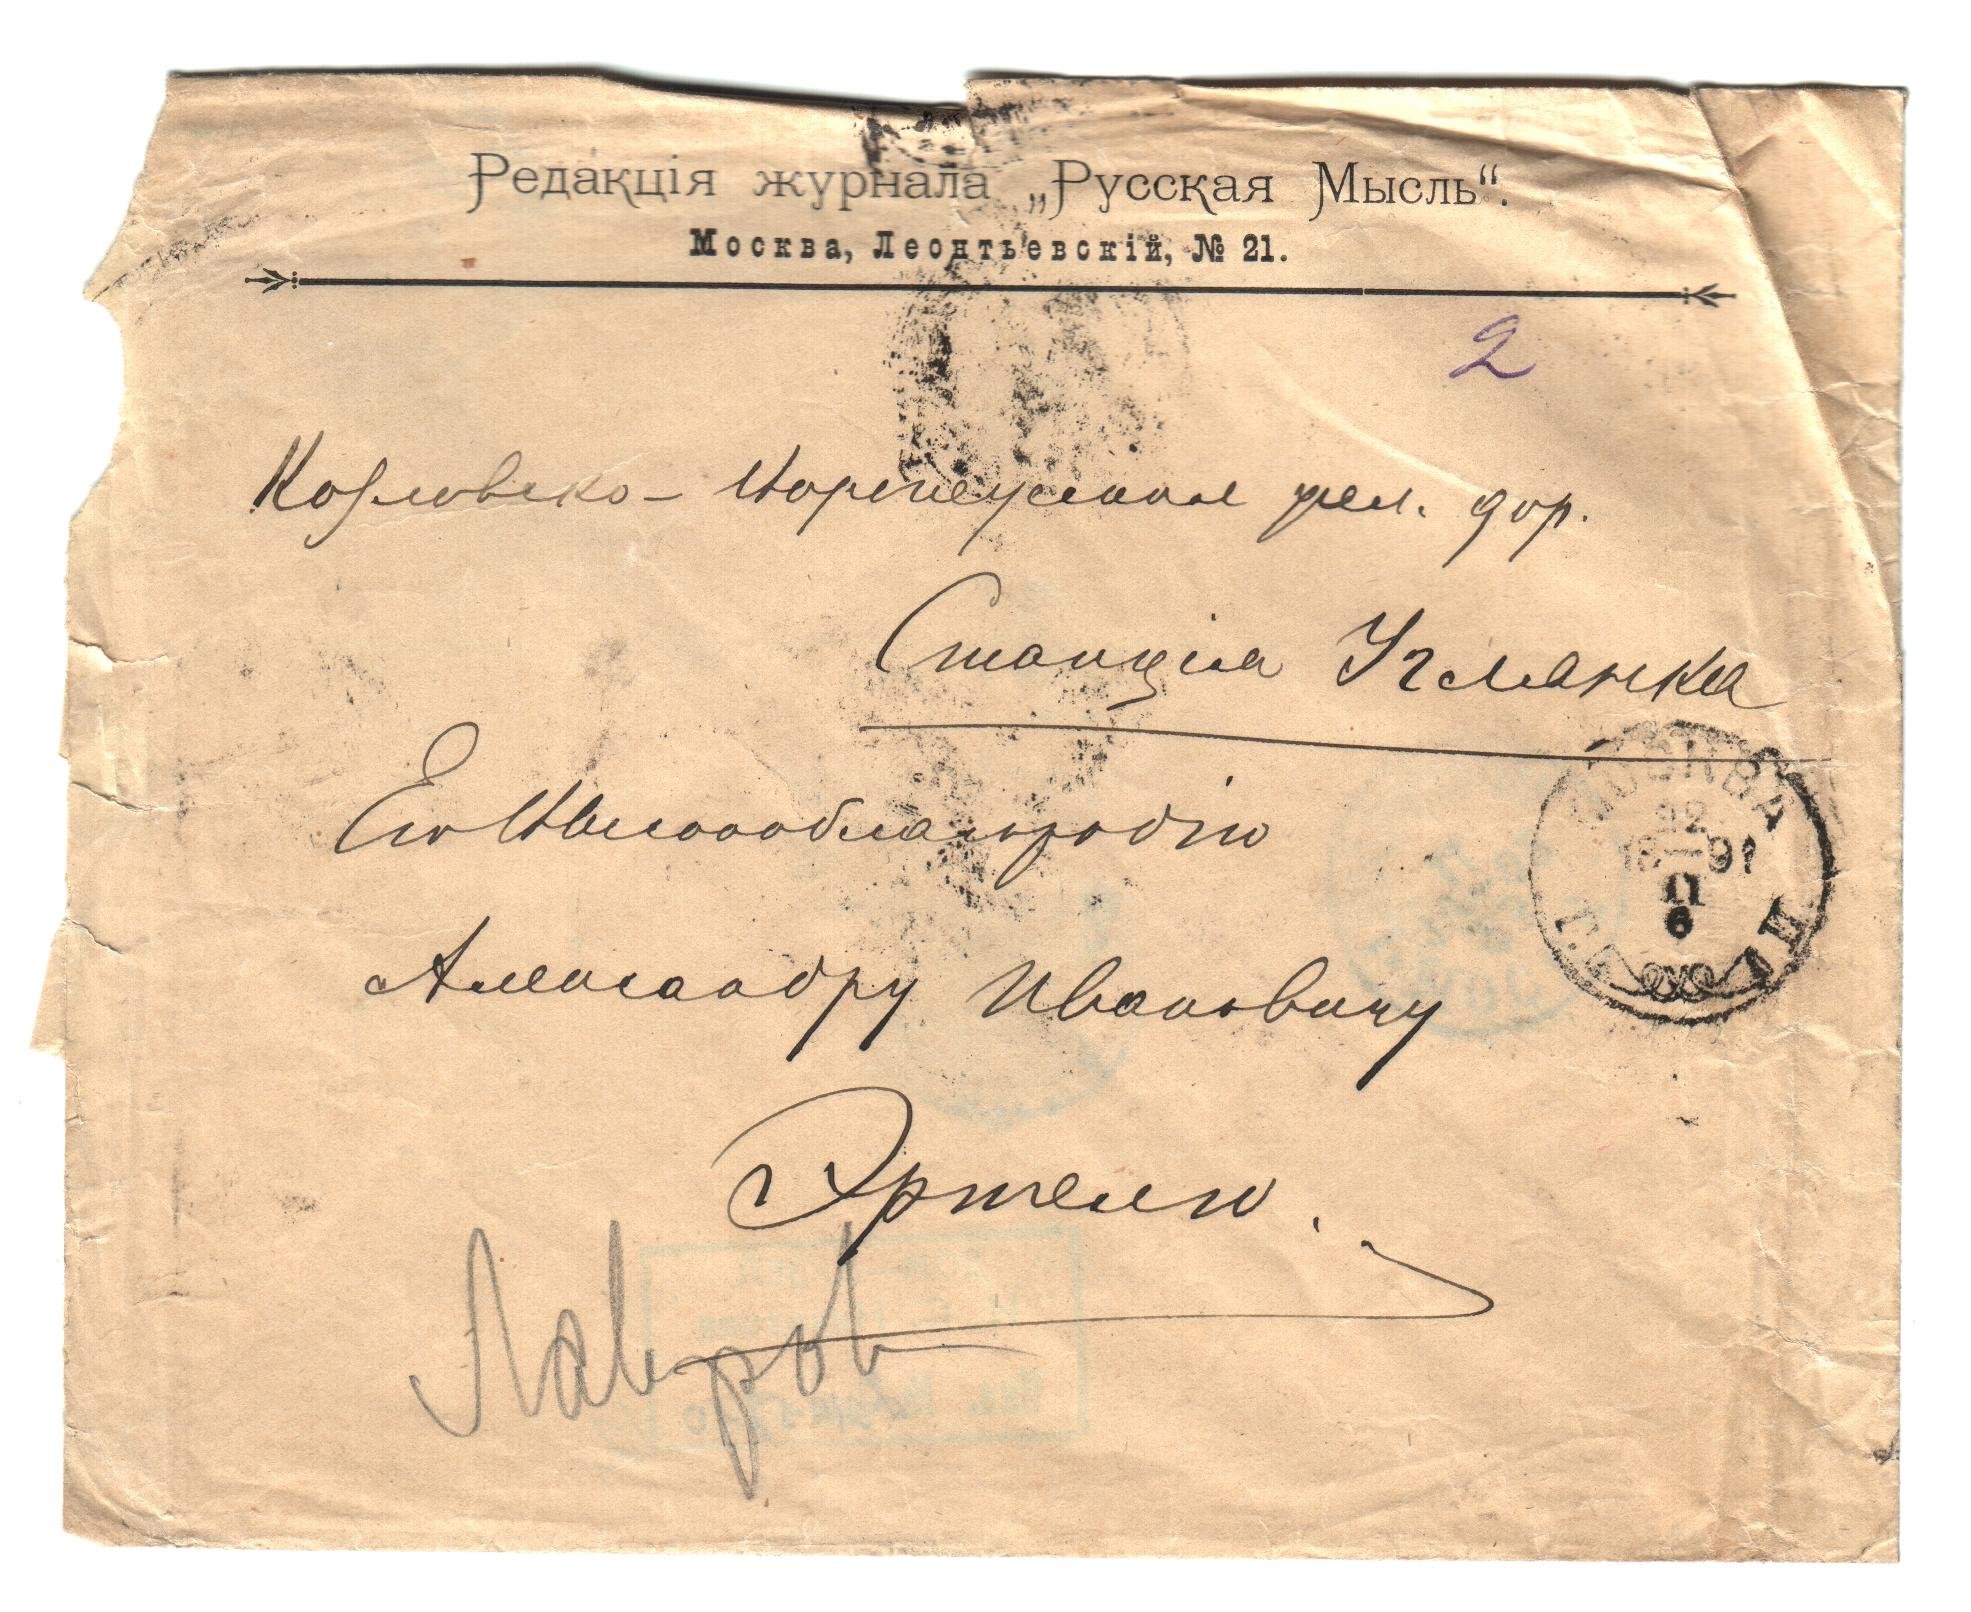 Редакція журнала „Русская Мысль“.
Москва, Леонтьевскій, № 21.
2
Козловско-Воронежская жел. дор.
Станція Усманка
Его Высокоблагородію
МОСКВА
12
1891
II
6
Александру Ивановичу
Эртелю.
Лавров